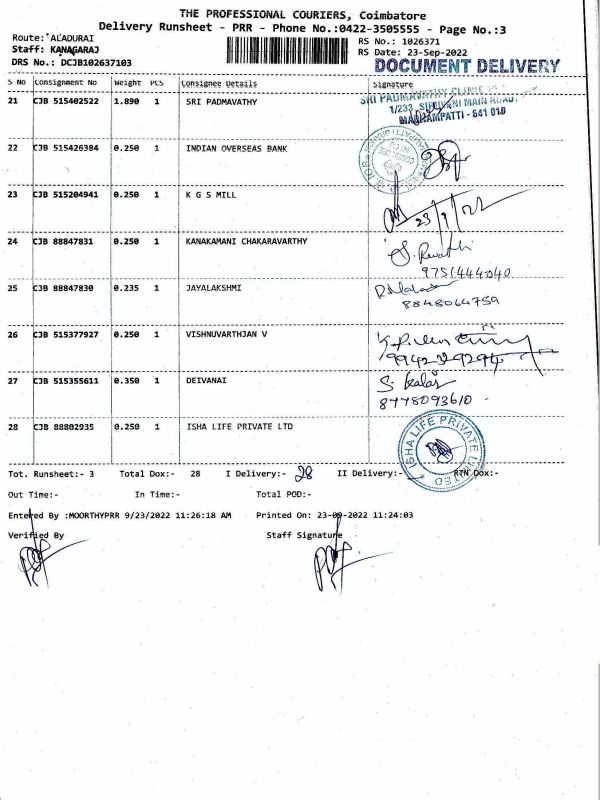 THE PROFESSIONAL COURIERS, Coimbatore
Delivery Runsheet - PRR - Phone No.:0422-3505555 - Page No.:3
Route: ALADURAI
RS No.: 1026371
Staff: KANAGARAJ
RS Date: 23-Sep-2022
DRS No.: DCJB102637103
DOCUMENT DELIVERY
S NO Consignment No Weight PCS Consignee Details Signature
21 CJB 515402522 1.890 1 SRI PADMAVATHY
SRI PADMAVATHY CLINIC
1/233, SIRUVANI MAIN ROAD,
MADHAMPATTI - 641 010
22 CJB 515426384 0.250 1 INDIAN OVERSEAS BANK
23 CJB 515204941 0.250 1 K G S MILL
23/9/22
24 CJB 88847831 0.250 1 KANAKAMANI CHAKARAVARTHY
S. Revathi
9751444040
25 CJB 88847830 0.235 1 JAYALAKSHMI
8848064759
26 CJB 515377927 0.250 1 VISHNUVARTHJAN V
27 CJB 515355611 0.350 1 DEIVANAI
S. Kalai
8778093610
28 CJB 88802935 0.250 1 ISHA LIFE PRIVATE LTD
ISHA LIFE PRIVATE LIMITED
Tot. Runsheet:- 3 Total Dox:- 28 I Delivery:- 28 II Delivery:- RTN Dox:-
Out Time:- In Time:- Total POD:-
Entered By :MOORTHYPRR 9/23/2022 11:26:18 AM Printed On: 23-09-2022 11:24:03
Verified By Staff Signature